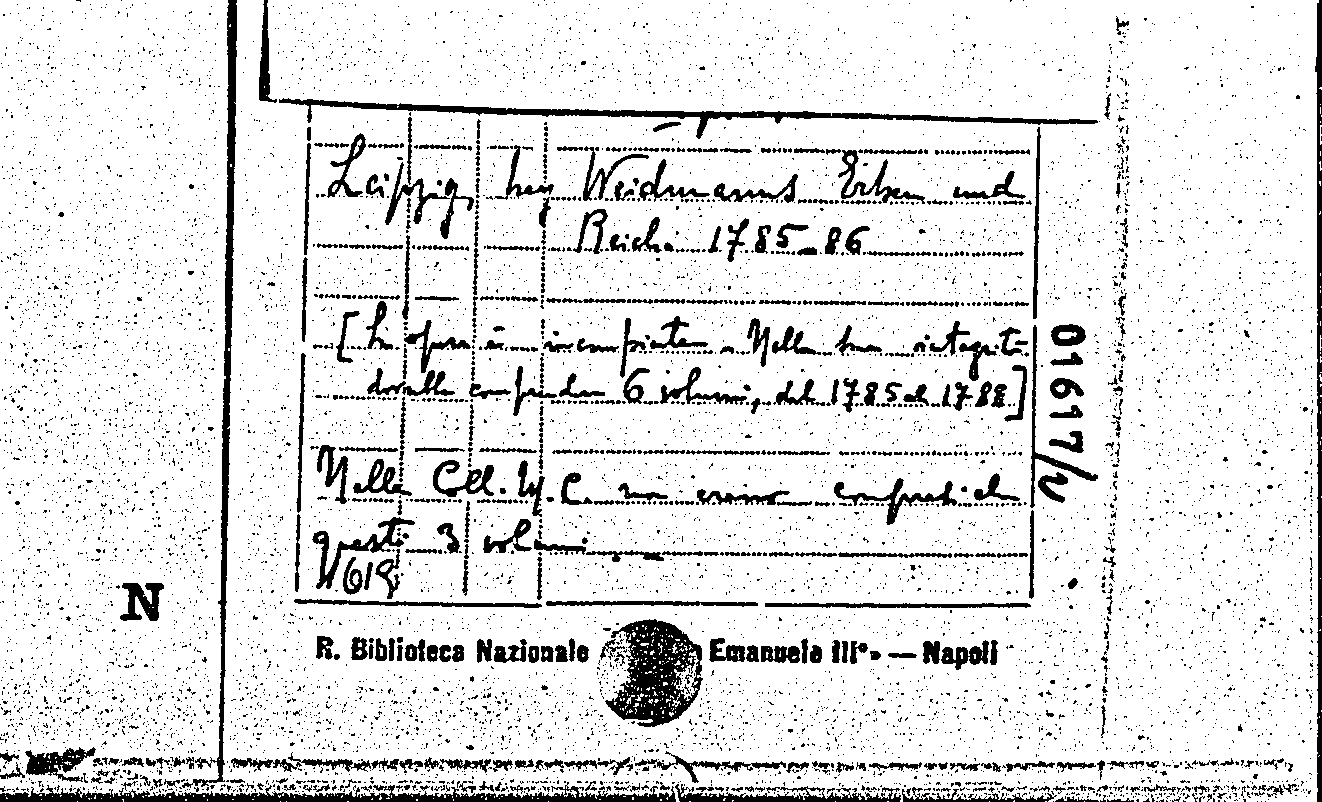 Leipzig, bey Weidmanns Erben und
Reich. 1785-86
[L'opera è incompleta. Nella sua integrità
dovrebbe comprendere 6 volumi, dal 1785 al 1788]
Nella Coll. non erano compresi che
questi 3 volumi. -
1618
01617/2
N
R. Biblioteca Nazionale Emanuele III°» — Napoli